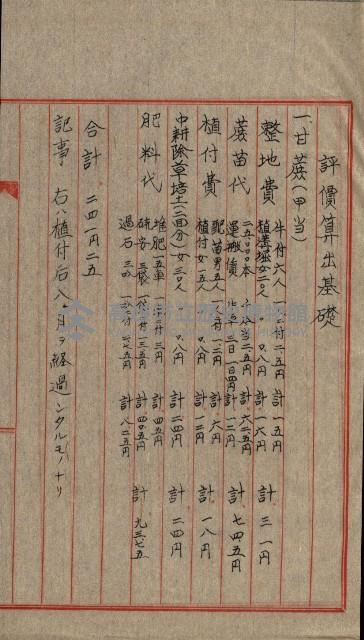 評價算出基礎
一、甘蔗(甲当)
整地費 牛付六人 一人ニ付二.五円 計 一五円
植溝堀女二〇人 〃 〇.八円 計 一六円 計 三一円
蔗苗代 二五〇〇〇本 二.五円 計 六二.五円
運搬賃 三日 一日四円 計 一二円 計 七四.五円
植付費 配苗男五人 一人ニ付一.二円 計 六円
植付女一五人 〃 〇.八円 計 一二円 計 一八円
中耕除草培土(二回分) 女三〇人 〃 〇.八円 計 二四円 計 二四円
肥料代 堆肥一五車 一車ニ付三円 計 四五円
硫安三袋 一袋ニ付一三.五円 計 四〇.五円
過石 計 八.二五円 計 九三.七五
合計 二四一円二五
記事 右ハ植付后八ヶ月ヲ経過シタルモノナリ